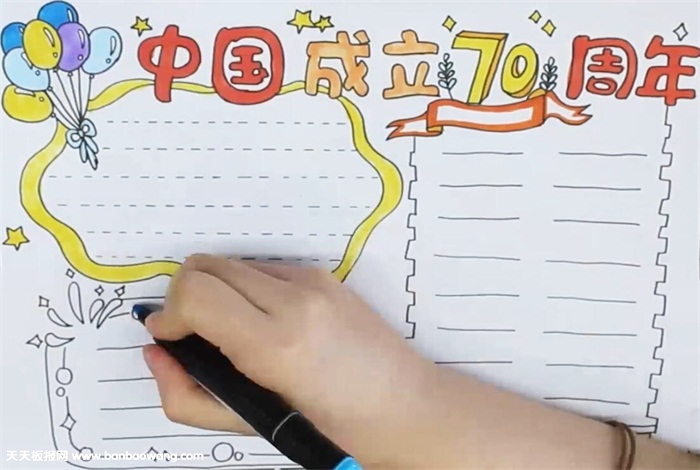 中国成立70周年
天天板报网 www.banbaowang.com